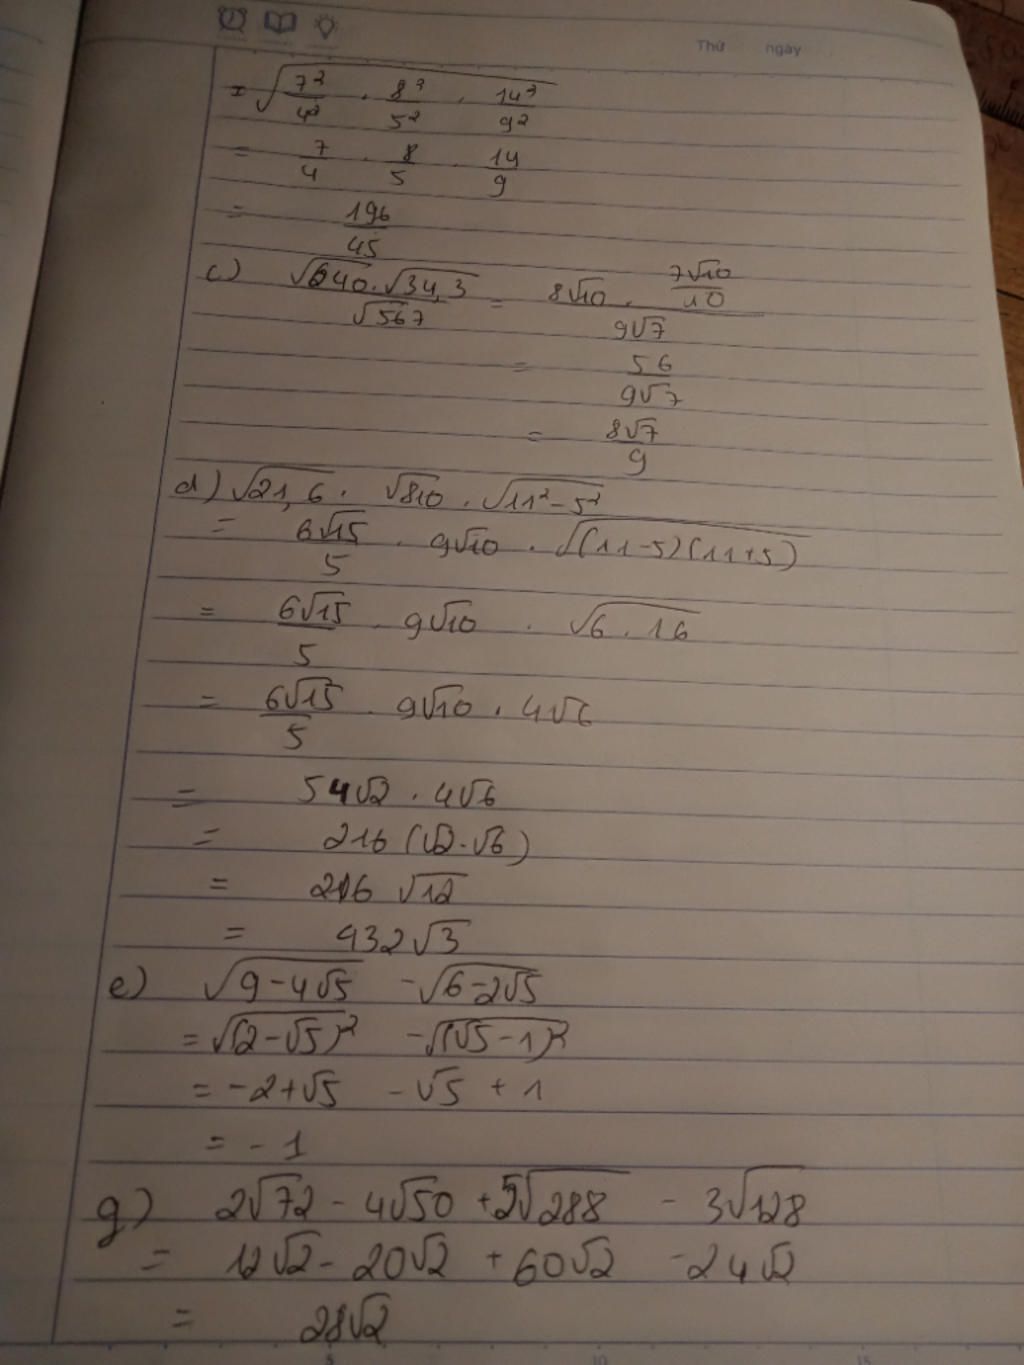 Thứ ngày
= √(7²/4² . 8²/5² . 14²/9²)
= 7/4 . 8/5 . 14/9
= 196/45
c) √640.√34,3/√567 = 8√10 . 7√10/10 / 9√7
= 56/9√7
= 8√7/9
d) √21,6 . √810 . √11²-5²
= 6√15/5 . 9√10 . √(11-5)(11+5)
= 6√15/5 . 9√10 . √6.16
= 6√15/5 . 9√10 . 4√6
= 54√2 . 4√6
= 216 (√2.√6)
= 216 √12
= 432√3
e) √9-4√5 -√6-2√5
= √(2-√5)² -√(√5-1)²
= -2+√5 -√5 +1
= -1
g) 2√72 - 4√50 +5√288 - 3√128
= 12√2 - 20√2 + 60√2 -24√2
= 28√2
5 10 15